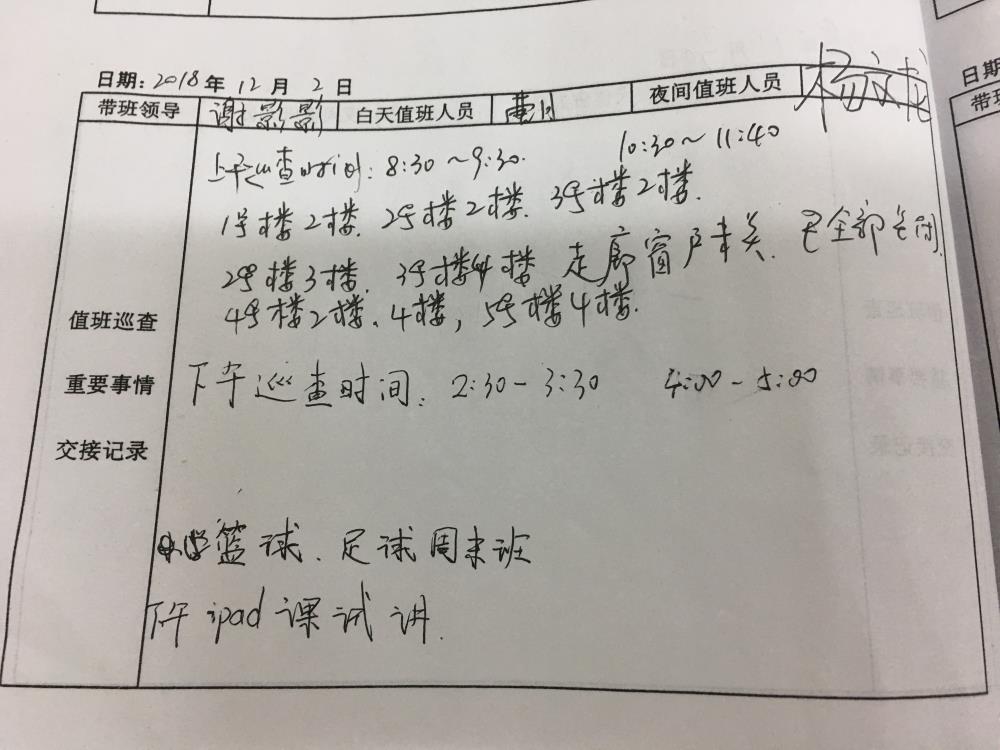 日期:2018年12月2日
带班领导 谢影影 白天值班人员 曹 夜间值班人员 杨文
上午巡查时间:8:30~9:30. 10:30~11:40
1号楼2楼. 2号楼2楼. 3号楼2楼.
2号楼3楼. 3号楼4楼 走廊窗户未关. 已全部关闭.
4号楼2楼、4楼, 5号楼4楼.
值班巡查
重要事情
下午巡查时间: 2:30-3:30 4:00-5:00
交接记录
小学篮球、足球周末班
下午ipad课试讲.
日期
带班